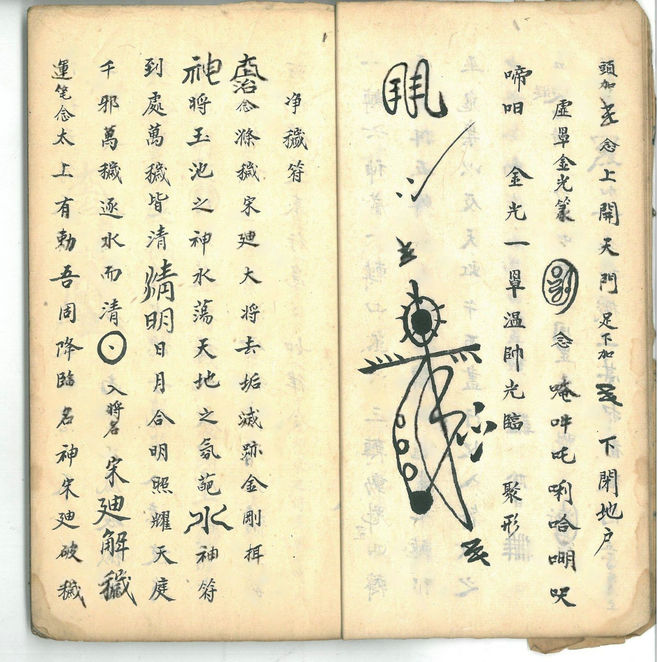 頭加 念上開天門足下加 下閉地户
虛罩金光篆 念唵吽吒唎哈㘇呎
啼呬 金光一罩溫帥光臨 聚形
净穢符
念滌穢宋廸大将去垢滅跡金剛揖
神將玉池之神水蕩天地之氛葩水神符
到處萬穢皆清晴明日月合明照耀天庭
千邪萬穢逐水而清 入將名宋廸解穢
運笔念太上有勅吾固降臨名神宋廸破穢